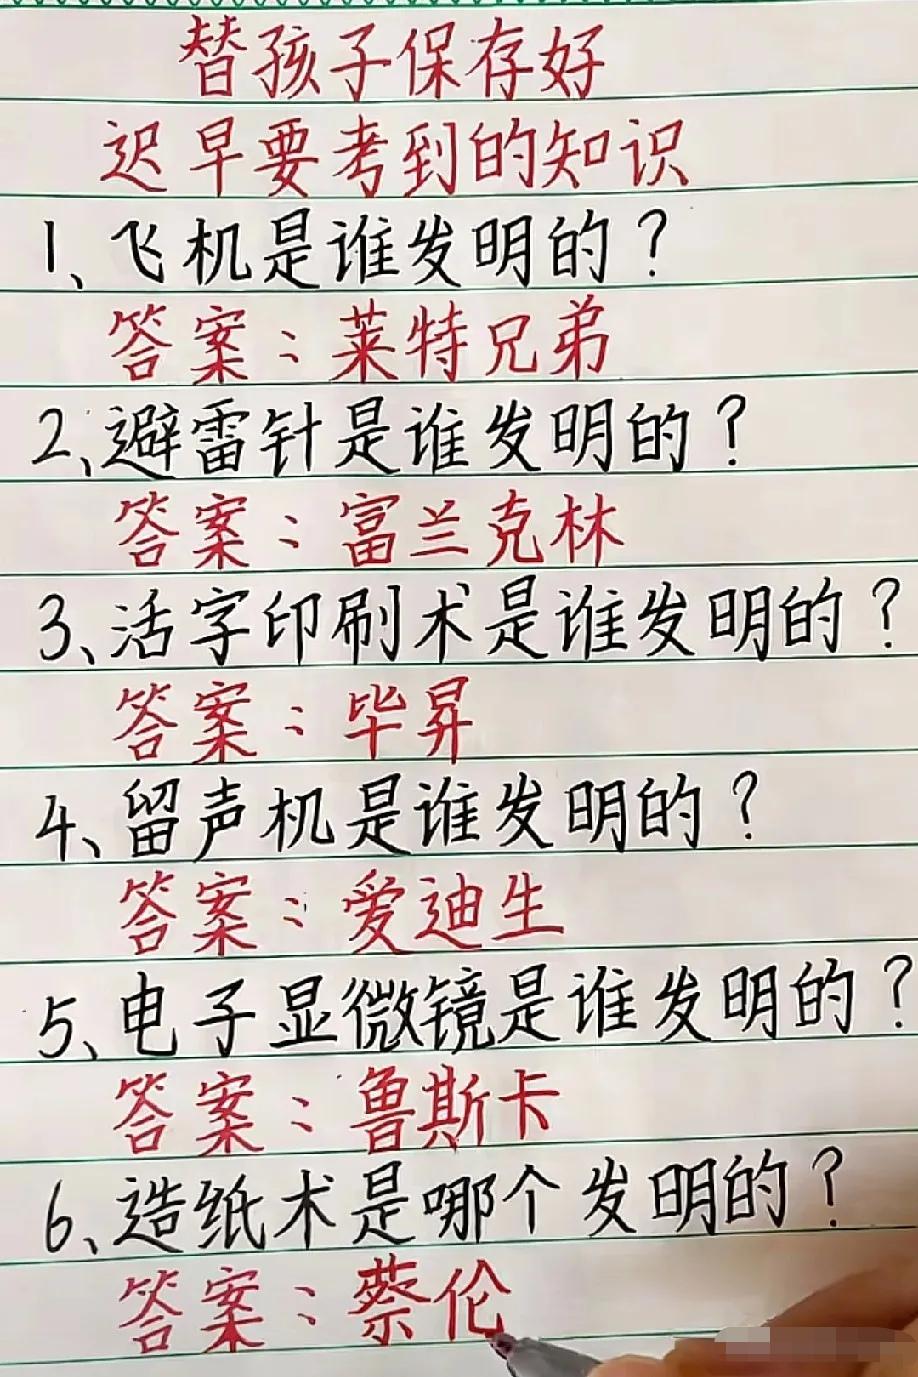 替孩子保存好
迟早要考到的知识
1、飞机是谁发明的?
答案:莱特兄弟
2、避雷针是谁发明的?
答案:富兰克林
3、活字印刷术是谁发明的?
答案:毕昇
4、留声机是谁发明的?
答案:爱迪生
5、电子显微镜是谁发明的?
答案:鲁斯卡
6、造纸术是哪个发明的?
答案:蔡伦